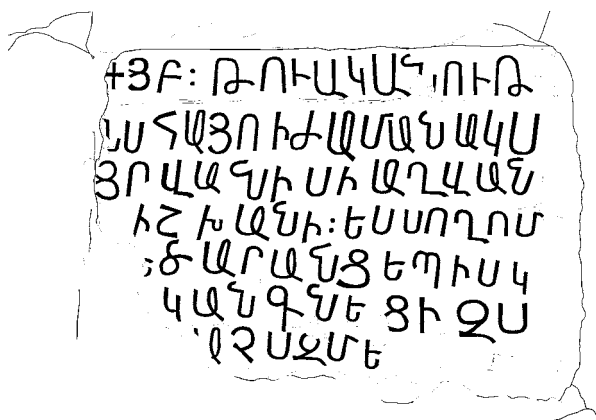 +ՅԲ: ԹՈՒԱԿԱՆՈՒԹ
ՆՍ ՀԱՅՈ Ի ԺԱՄԱՆԱԿՍ
ՅՐ ՎԱՆԻՍԻ ԱՂՎԱՆ
ԻՇԽԱՆԻ: ԵՍ ՍՈՂՈՄ
ԵՊԻՍԿ
ԿԱՆԳՆԵՑԻ ԶՍ